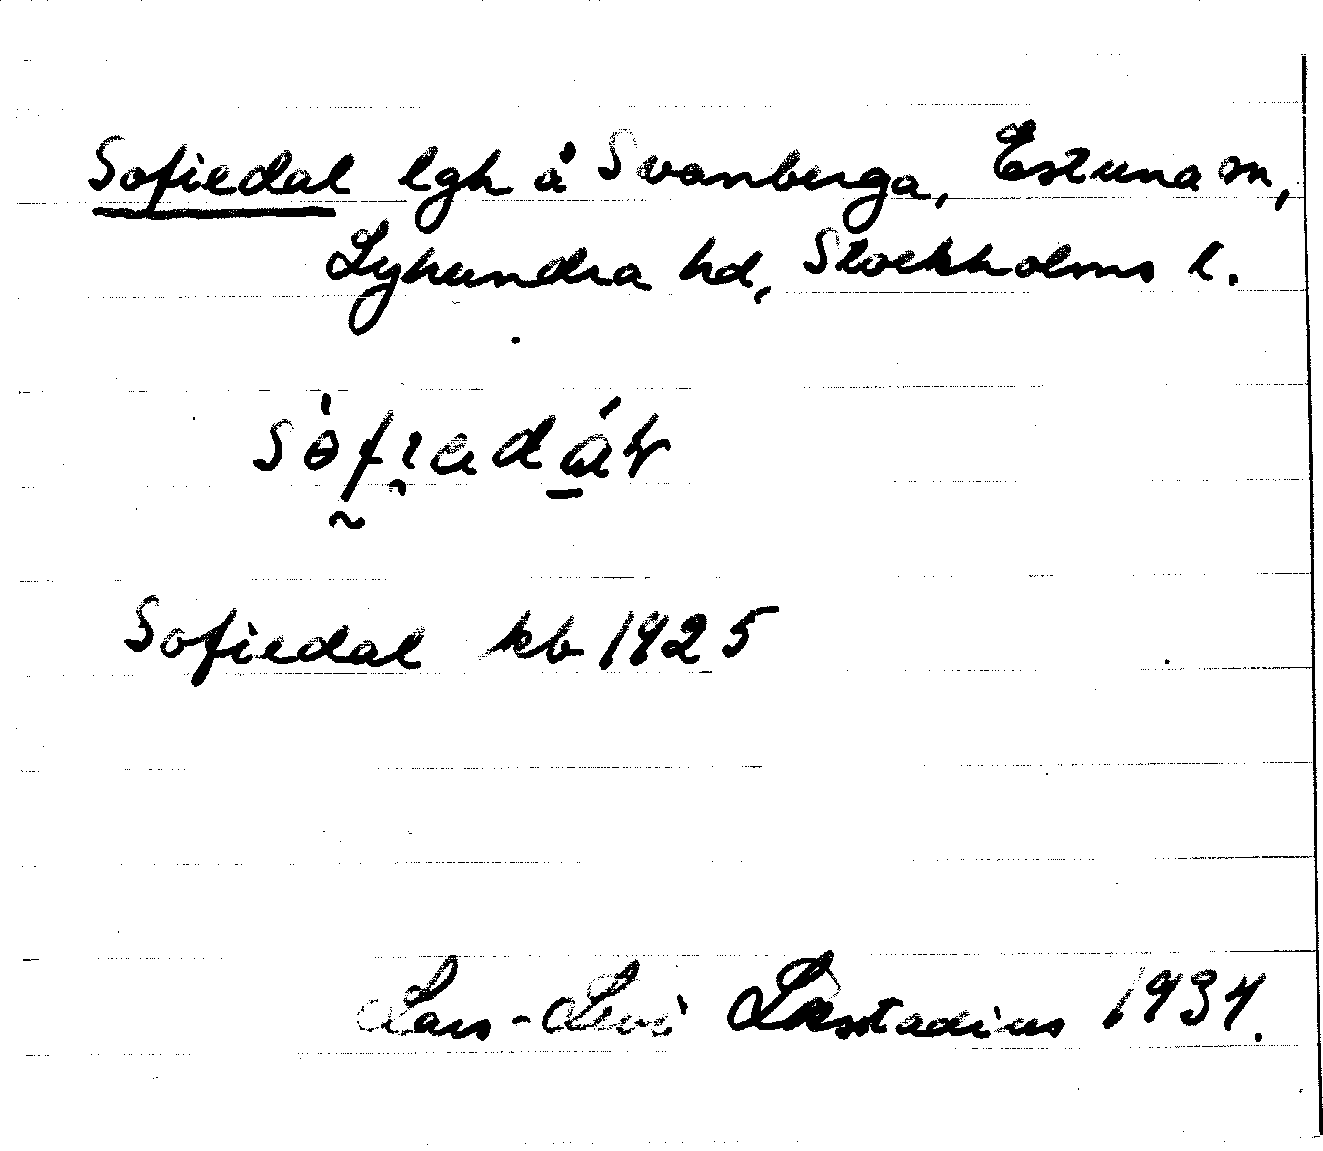 Sofiedal lgh å Svanberga, Estuna sn,
Lyhundra hd, Stockholms l.
Sofiedal kb 1925
Lars-Levi Læstadius 1934.